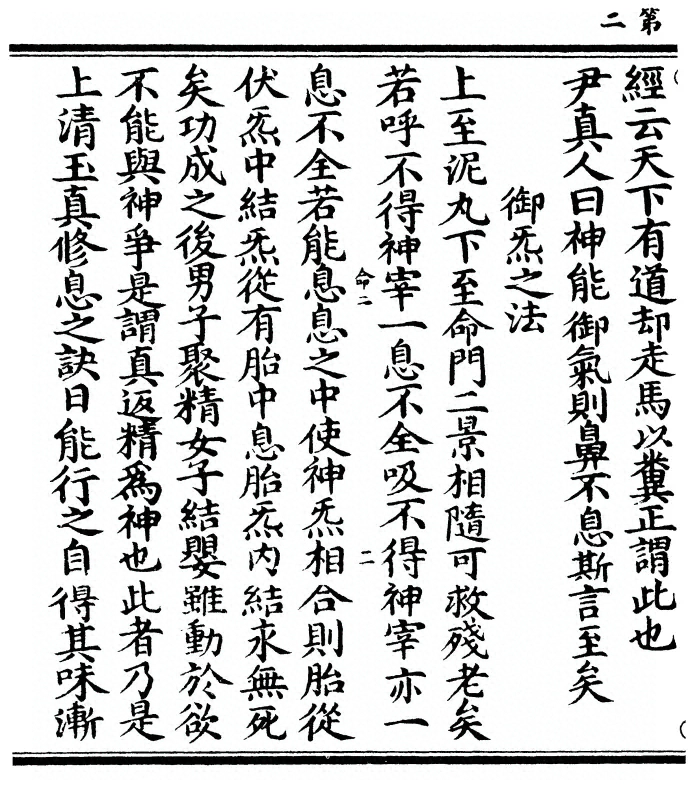 第二
經云天下有道却走馬以糞正謂此也
尹真人曰神能御氣則鼻不息斯言至矣
御炁之法
上至泥丸下至命門二景相隨可救殘老矣
若呼不得神宰一息不全吸不得神宰亦一
命二
二
息不全若能息息之中使神炁相合則胎從
伏炁中結炁從有胎中息胎炁内結永無死
矣功成之後男子聚精女子結嬰雖動於欲
不能與神爭是謂真返精為神也此者乃是
上清玉真修息之訣日能行之自得其味漸